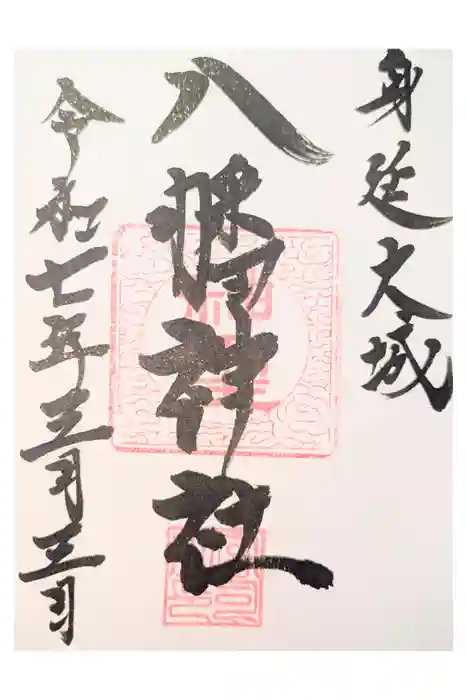 身延大城
八幡神社
令和七年三月三日